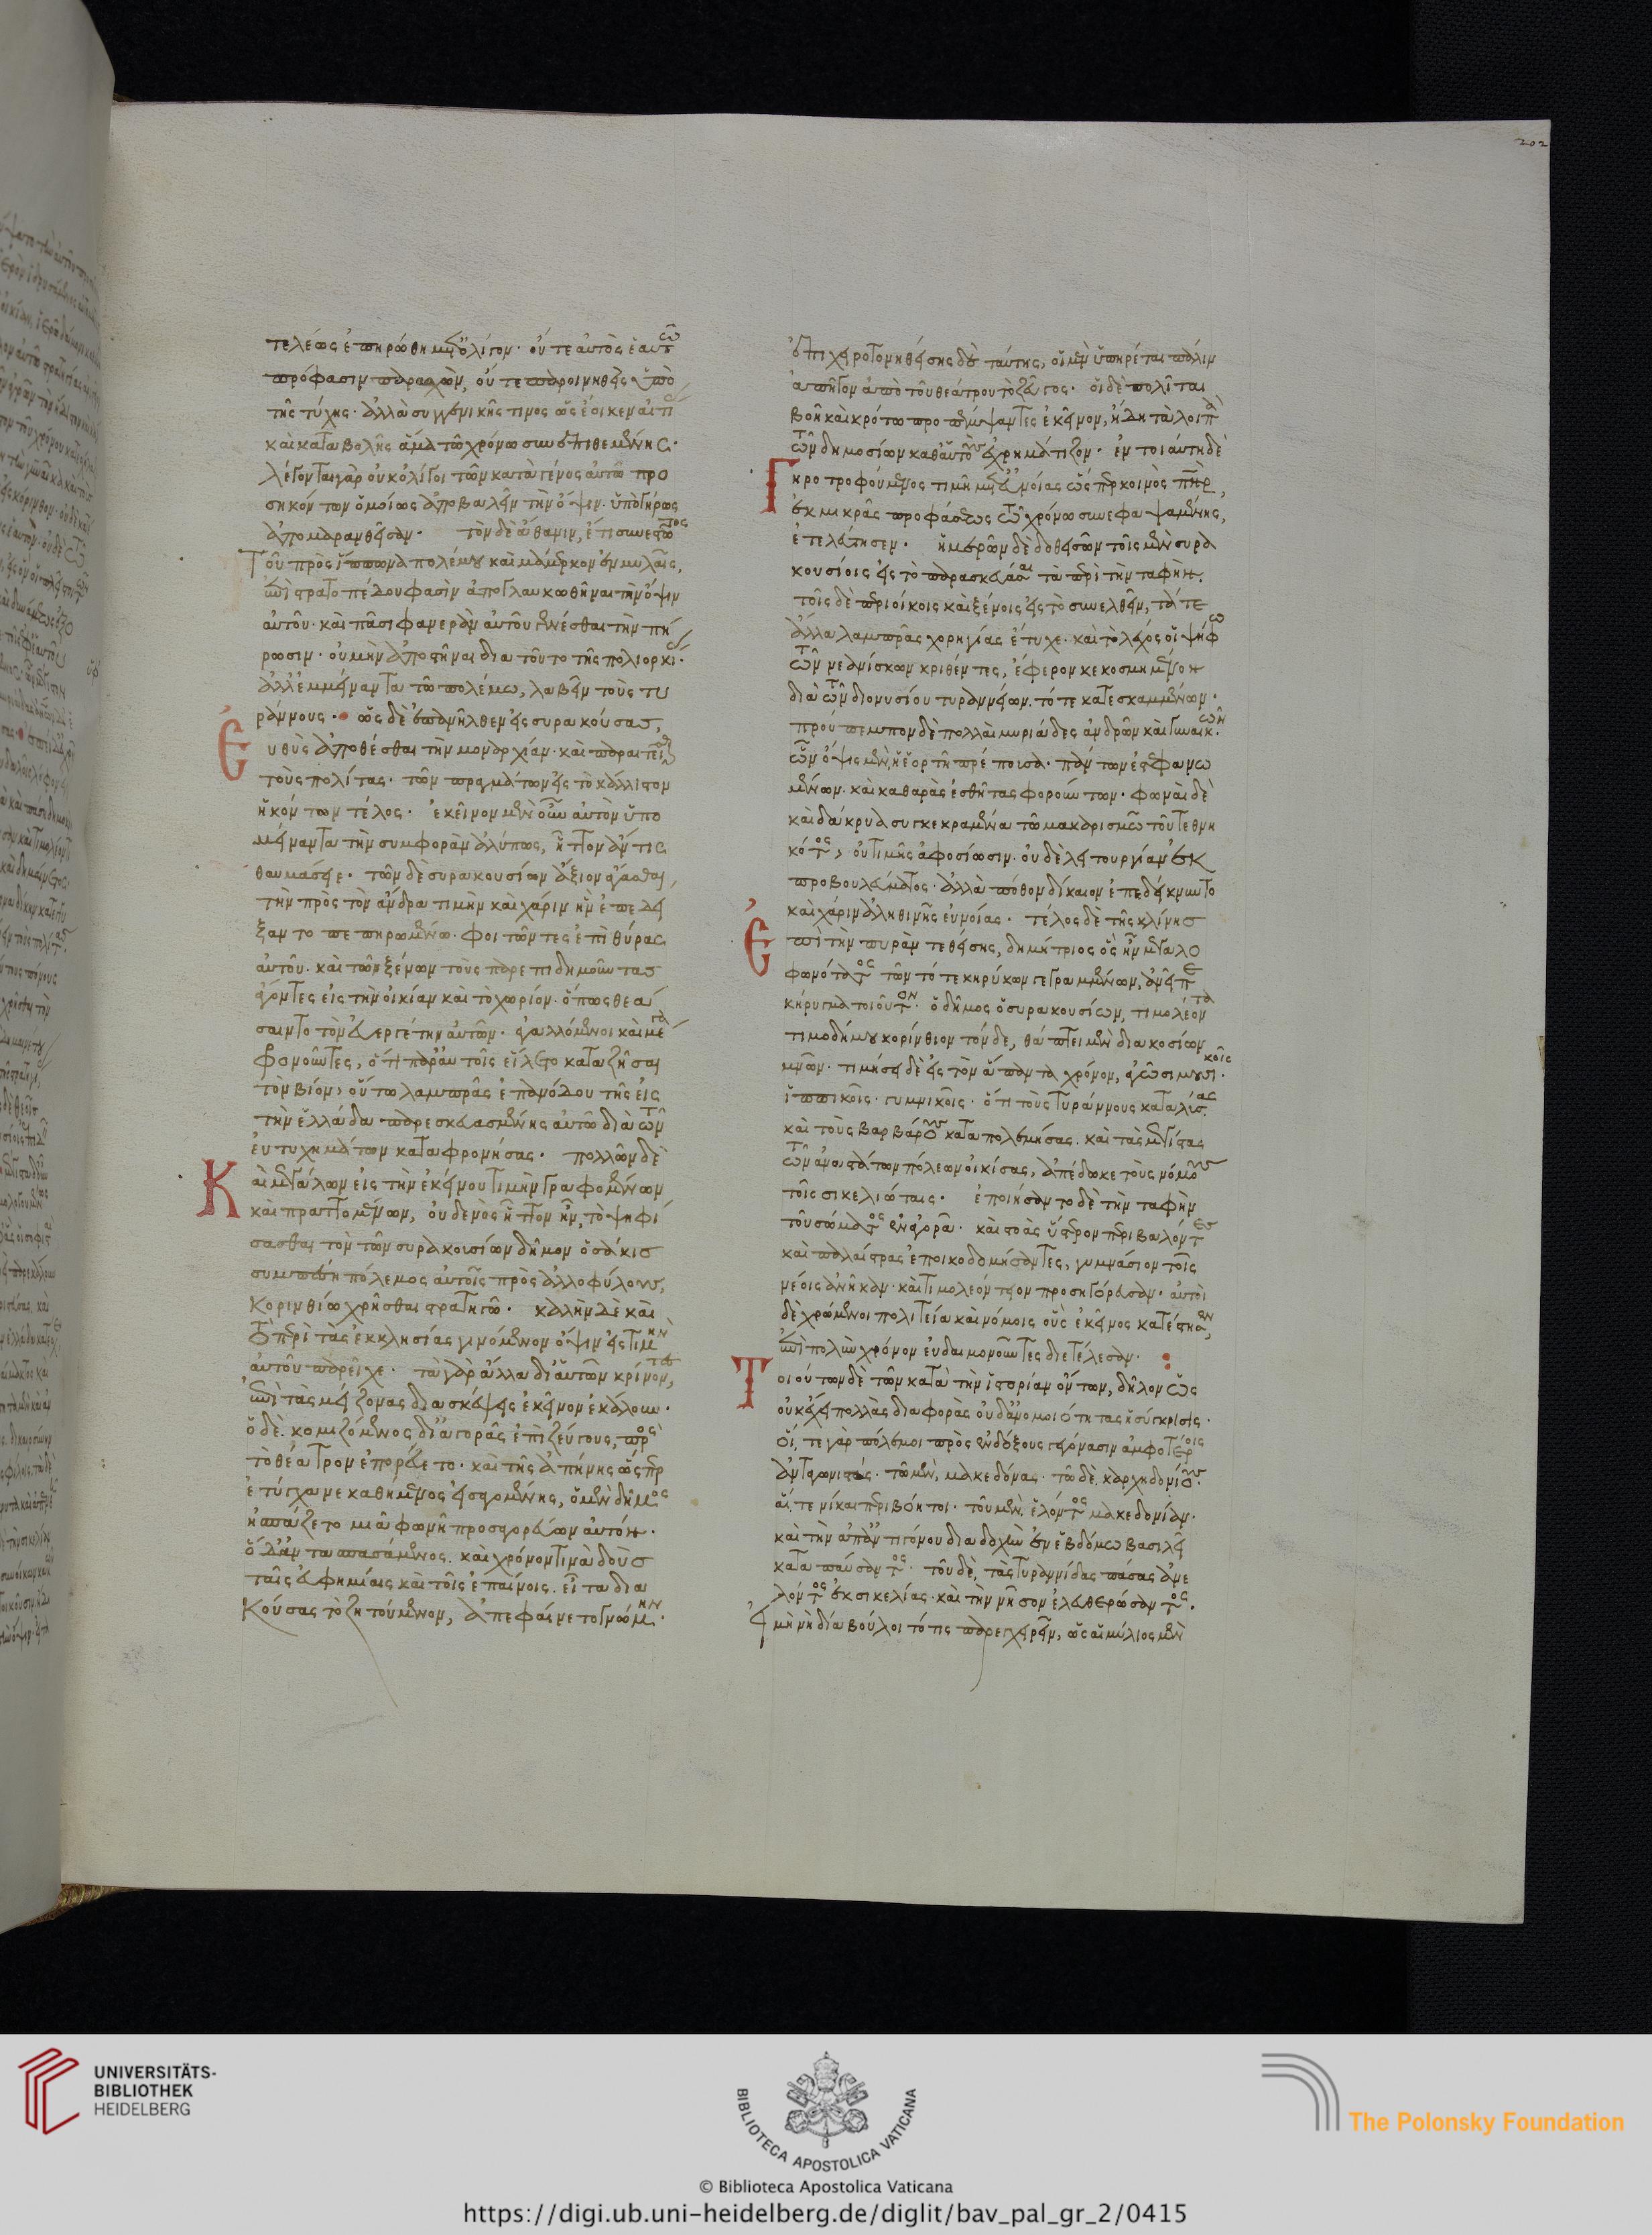 202
τελέως ἐπηρώθη μετ' ὀλίγον· οὔτε αὐτὸς ἑαυτῶ
πρόφασιν παρασχὼν, οὔτε παροινηθεὶς ὑπὸ
τῆς τύχης· ἀλλὰ συγγενικῆς τινος ὡς ἔοικεν αἰτί
καὶ καταβολῆς ἅμα τῶ χρόνω συνεπιθεμένης·
λέγονται γὰρ οὐκ ὀλίγοι τῶν κατὰ γένος αὐτῶ προ
σηκόντων ὁμοίως ἀποβαλεῖν τὴν ὄψιν· ὑπὸ γήρως
ἀπομαρανθεῖσαν· τὸν δὲ ἄθανιν, ἔτι συνεστῶτος
Τοῦ πρὸς ἵππωνα πολέμου καὶ μάμερκον ἐν μυλαῖς,
ἐπὶ στρατοπέδου φασὶν ἀπογλαυκωθῆναι τὴν ὄψιν
αὐτοῦ· καὶ πᾶσι φανερὰν αὐτοῦ γενέσθαι τὴν πή
ρωσιν· οὐ μὴν ἀποστῆναι διὰ τοῦτο τῆς πολιορκί·
ἀλλ' ἐμμείναντα τῶ πολέμω, λαβεῖν τοὺς τυ
ράννους· ὡς δὲ ἐπανῆλθεν εἰς συρακούσας,
Εὐθὺς ἀποθέσθαι τὴν μοναρχίαν· καὶ παραιτεῖσθαι
τοὺς πολίτας· τῶν πραγμάτων εἰς τὸ κάλλιστον
ἡκόντων τέλος· ἐκεῖνον μὲν οὖν αὐτὸν ὑπο
μείναντα τὴν συμφορὰν ἀλύπως, ἧττον ἄν τις
θαυμάσειε· τῶν δὲ συρακουσίων ἄξιον ἄγασθαι
τὴν πρὸς τὸν ἄνδρα τιμὴν καὶ χάριν ἣν ἐπεδεί
ξαντο πεπηρωμένω· φοιτῶντες ἐπὶ θύρας
αὐτοῦ· καὶ τῶν ξένων τοὺς παρεπιδημοῦντας
ἄγοντες εἰς τὴν οἰκίαν καὶ τὸ χωρίον· ὅπως θεά
σαιντο τὸν εὐεργέτην αὐτῶν· ἀγαλλόμενοι καὶ μεγα
φρονοῦντες, ὅτι παρ' αὐτοῖς εἵλετο καταζῆσαι
τὸν βίον, οὕτω λαμπρᾶς ἐπανόδου τῆς εἰς
τὴν ἑλλάδα παρεσκευασμένης αὐτῶ διὰ τῶν
εὐτυχημάτων καταφρονήσας· πολλῶν δὲ
Καὶ μεγάλων εἰς τὴν ἐκείνου τιμὴν γραφομένων
καὶ πραττομένων, οὐδενὸς ἧττον ἦν, τὸ ψηφί
σασθαι τὸν τῶν συρακουσίων δῆμον ὁσάκις
συμπέσῃ πόλεμος αὐτοῖς πρὸς ἀλλοφύλους,
Κορινθίω χρῆσθαι στρατηγῶ· καλὴν δὲ καὶ
τὸ περὶ τὰς ἐκκλησίας γινόμενον ὄψιν εἰς τιμὴν
αὐτοῦ παρεῖχε· τὰ γὰρ ἄλλα δι' αὑτῶν κρίνοντες,
ἐπὶ τὰς μείζονας διασκέψεις ἐκεῖνον ἐκάλουν·
ὁ δὲ κομιζόμενος δι' ἀγορᾶς ἐπὶ ζεύγους, πρὸς
τὸ θέατρον ἐπορεύετο· καὶ τῆς ἀπήνης ὥσπερ
ἐτύγχανε καθήμενος εἰσαγομένης, ὁ μὲν δῆμος
ἠσπάζετο μιᾶ φωνῆ προσαγορεύων αὐτόν·
ὁ δ' ἀντασπασάμενος· καὶ χρόνον τινὰ δοὺς
ταῖς εὐφημίαις καὶ τοῖς ἐπαίνοις· εἶτα δια
Κούσας τὸ ζητούμενον, ἀπεφαίνετο γνώμην·
ἐπιχειροτονηθείσης δὲ ταύτης, οἱ μὲν ὑπηρέται πάλιν
ἀπῆγον ἀπὸ τοῦ θεάτρου τὸ ζεῦγος· οἱ δὲ πολῖται
βοῆ καὶ κρότω προπέμψαντες ἐκεῖνον, ἤδη τὰ λοιπὰ
τῶν δημοσίων καθ' αὑτοὺς ἐχρημάτιζον· ἐν τοιαύτη δὲ
Γηροτροφούμενος τιμῆ μετ' εὐνοίας ὥσπερ κοινὸς πατὴρ,
ἐκ μικρᾶς προφάσεως τῶ χρόνω συνεφαψαμένης,
ἐτελεύτησεν· ἡμερῶν δὲ δοθεισῶν τοῖς μὲν συρα
κουσίοις εἰς τὸ παρασκευάσαι τὰ περὶ τὴν ταφὴν·
τοῖς δὲ περιοίκοις καὶ ξένοις εἰς τὸ συνελθεῖν, τά τε
ἄλλα λαμπρᾶς χορηγίας ἔτυχε· καὶ τὸ λέχος οἱ ψήφω
τῶν νεανίσκων κριθέντες, ἔφερον κεκοσμημένον
διὰ τῶν διονυσίου τυραννείων τότε κατεσκαμμένων·
προύπεμπον δὲ πολλαὶ μυριάδες ἀνδρῶν καὶ γυναικῶν·
ὧν ὄψις μὲν ἦν ἑορτῆ πρέπουσα· πάντων ἐστεφανω
μένων· καὶ καθαρὰς ἐσθῆτας φορούντων· φωναὶ δὲ
καὶ δάκρυα συγκεκραμένα τῶ μακαρισμῶ τοῦ τεθνη
κότος, οὐ τιμῆς ἀφοσίωσιν· οὐδὲ λειτουργίαν ἐκ
προβουλεύματος· ἀλλὰ πόθον δίκαιον ἐπεδείκνυντο
καὶ χάριν ἀληθινῆς εὐνοίας· τέλος δὲ τῆς κλίνης
Ἐπὶ τὴν πυρὰν τεθείσης, δημήτριος ὃς ἦν μεγαλο
φωνότατος τῶν τότε κηρύκων γεγραμμένων, ἀνεῖπε
κήρυγμα τοιοῦτον· ὁ δῆμος ὁ συρακουσίων, τιμολέοντα
τιμοδήμου κορίνθιον τόνδε, θάπτει μὲν διακοσίων
μνῶν· τιμήσει δὲ εἰς τὸν ἅπαντα χρόνον, ἀγῶσι μουσικοῖς·
ἱππικοῖς· γυμνικοῖς· ὅτι τοὺς τυράννους καταλύσας·
καὶ τοὺς βαρβάρους καταπολεμήσας· καὶ τὰς μεγίστας
τῶν ἀναστάτων πόλεων οἰκίσας, ἀπέδωκε τοὺς νόμους
τοῖς σικελιώταις· ἐποιήσαντο δὲ τὴν ταφὴν
τοῦ σώματος ἐν ἀγορᾶ· καὶ στοὰς ὕστερον περιβαλόντες
καὶ παλαίστρας ἐποικοδομήσαντες, γυμνάσιον τοῖς
νέοις ἀνῆκαν· καὶ τιμολεόντειον προσηγόρευσαν· αὐτοὶ
δὲ χρώμενοι πολιτεία καὶ νόμοις οὓς ἐκεῖνος κατέστησεν,
ἐπὶ πολὺν χρόνον εὐδαιμονοῦντες διετέλεσαν·
Τοιούτων δὲ τῶν κατὰ τὴν ἱστορίαν ὄντων, δῆλον ὡς
οὐκ ἔχει πολλὰς διαφορὰς οὐδ' ἀνομοιότητας ἡ σύγκρισις·
οἵ, τε γὰρ πόλεμοι πρὸς ἐνδόξους γεγόνασιν ἀμφοτέροις
ἀνταγωνιστάς· τῶ μὲν, μακεδόνας· τῶ δὲ, καρχηδονίους·
αἵ, τε νίκαι περιβόητοι· τοῦ μὲν, ἑλόντος μακεδονίαν·
καὶ τὴν ἀπ' ἀντιγόνου διαδοχὴν ἐν ἑβδόμω βασιλεῖ
καταπαύσαντος· τοῦ δὲ, τὰς τυραννίδας πάσας ἀνε
λόντος ἐκ σικελίας· καὶ τὴν νῆσον ἐλευθερώσαντος·
Εἰ μὴ νὴ δία βούλοιτό τις παρεγχειρεῖν, ὡς αἰμύλιος μὲν
UNIVERSITÄTS-
BIBLIOTHEK
HEIDELBERG
BIBLIOTECA APOSTOLICA VATICANA
The Polonsky Foundation
© Biblioteca Apostolica Vaticana
https://digi.ub.uni-heidelberg.de/diglit/bav_pal_gr_2/0415